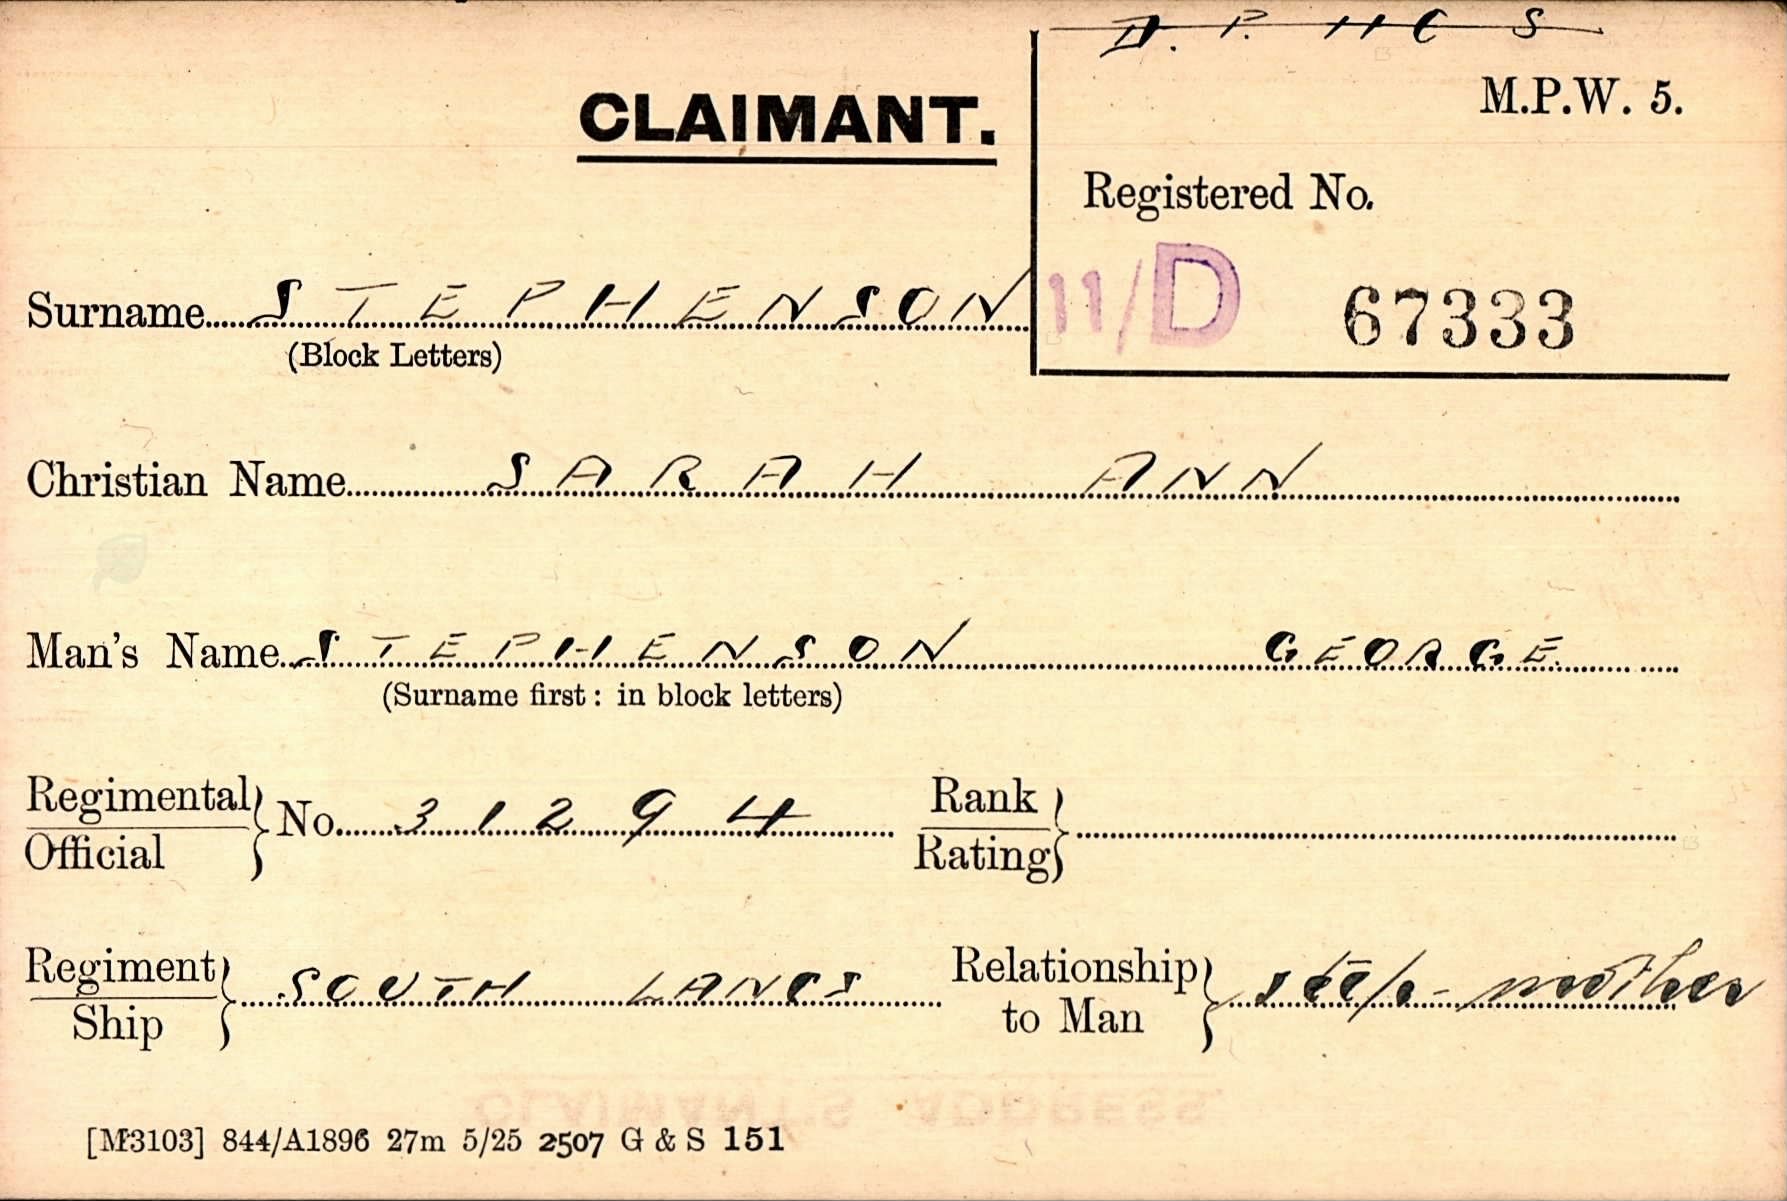 CLAIMANT.
M.P.W. 5.
Registered No.
11/D 67333
Surname STEPHENSON
(Block Letters)
Christian Name SARAH ANN
Man's Name STEPHENSON GEORGE
(Surname first: in block letters)
Regimental
Official
No. 31294
Rank
Rating
Regiment
Ship
SOUTH LANCS
Relationship
to Man
step-mother
CLAIMANT'S ADDRESS.
[M3103] 844/A1896 27m 5/25 2507 G & S 151